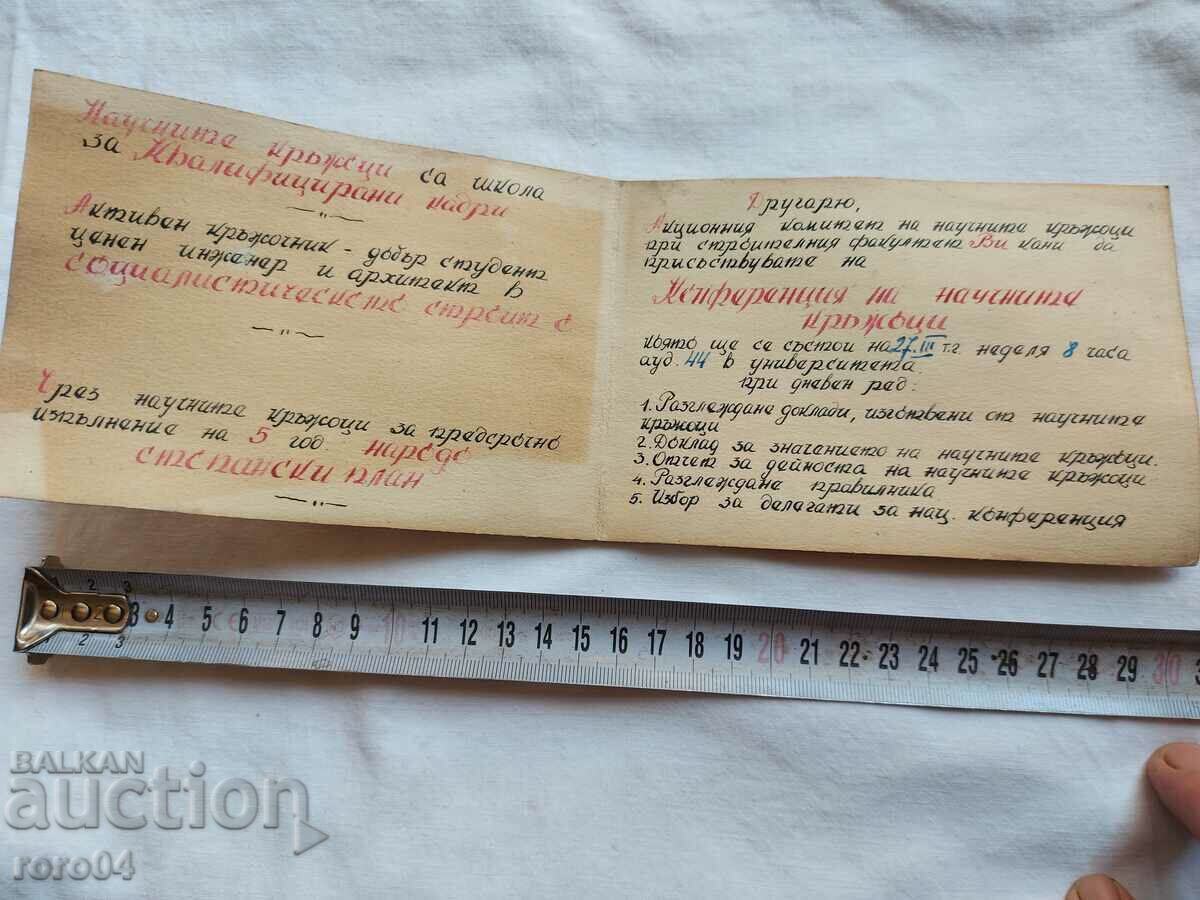 Научните кръжоци са школа
за Квалифицирани кадри
— " —
Активен кръжочник - добър студент
ценен инженер и архитект в
социалистическото строит о
— " —
Чрез научните кръжоци за предсрочно
изпълнение на 5 год. народо
стопански план
— " —
Другарю,
Акционния комитет на научните кръжоци
при строителния факултет Ви кани да
присъствувате на
Конференция на научните
кръжоци
която ще се състои на 27.III т.г. неделя 8 часа
ауд. 44 в университета.
при дневен ред:
1. Разглеждане доклади, изготвени от научните
кръжоци
2. Доклад за значението на научните кръжоци.
3. Отчет за дейноста на научните кръжоци
4. Разглеждане правилника
5. Избор за делегати за нац. конференция
1 2 3
1 2 3 4 5 6 7 8 9 10 11 12 13 14 15 16 17 18 19 20 21 22 23 24 25 26 27 28 29 30 3
1 2 3
BALKAN
auction
roro04